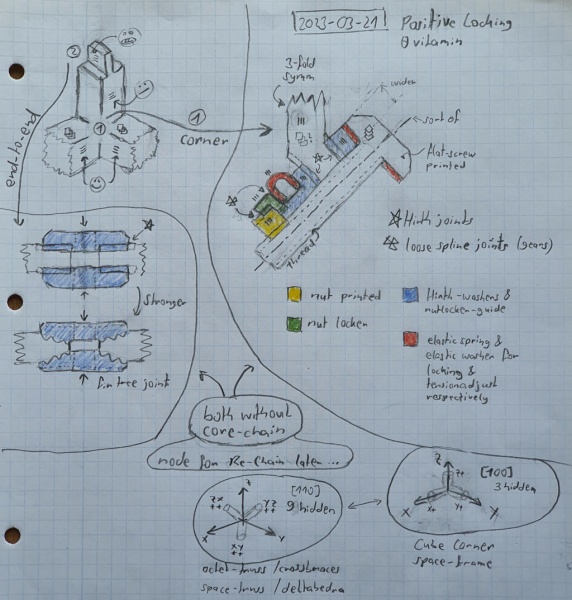 2023-03-21
Positive Locking
0 vitamin
2
1
end-to-end
1
corner
3-fold
symm
wider
sort of
flat-screw
printed
thread
Hirth joints
loose spline joints (gears)
nut printed
nut locker
Hirth-washers &
nutlocker-guide
elastic spring &
elastic washer for
locking &
tensionadjust
respectively
stronger
firtree joint
both without
core-chain
node for Re-Chain later ...
[110]
9 hidden
z
zx
++
yz
++
x
y
xy
++
octet-truss / crossbraces
space-truss / deltahedra
[100]
3 hidden
z
z+
x
x+
y+
y
Cube Corner
space-frame